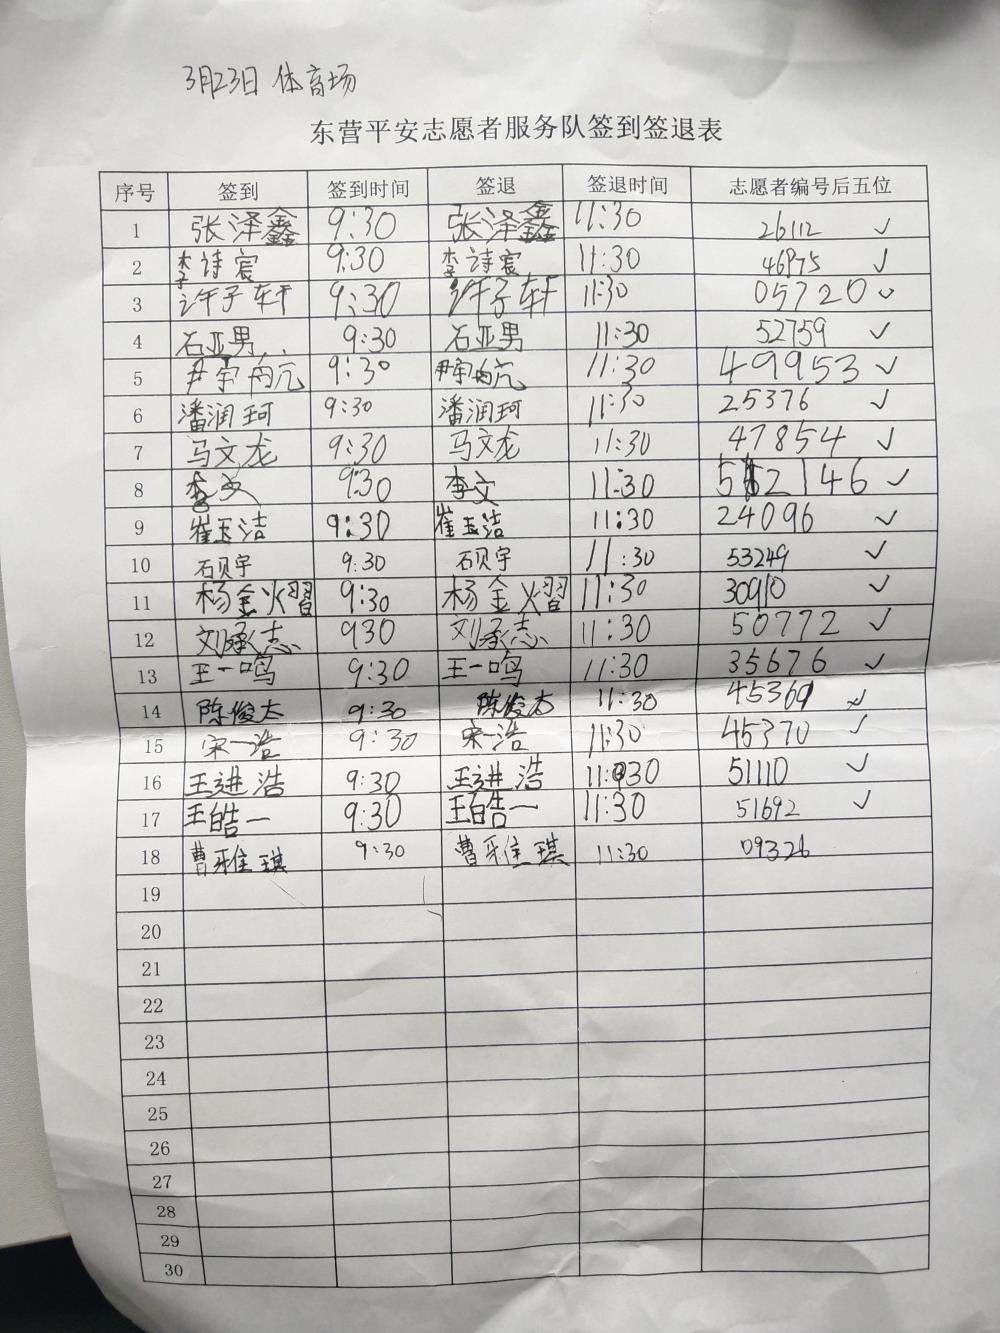 3月23日 体育场
东营平安志愿者服务队签到签退表
序号 签到 签到时间 签退 签退时间 志愿者编号后五位
1 张泽鑫 9:30 张泽鑫 11:30 26112 ✓
2 李诗宸 9:30 李诗宸 11:30 46975 ✓
3 许子轩 9:30 许子轩 11:30 05720 ✓
4 石亚男 9:30 石亚男 11:30 52759 ✓
5 尹宇航 9:30 尹宇航 11:30 49953 ✓
6 潘润珂 9:30 潘润珂 11:30 25376 ✓
7 马文龙 9:30 马文龙 11:30 47854 ✓
8 李文 9:30 李文 11:30 ✓
9 崔玉洁 9:30 崔玉洁 11:30 24096 ✓
10 石贝宇 9:30 石贝宇 11:30 53249 ✓
11 杨金熠 9:30 杨金熠 11:30 30910 ✓
12 刘承志 930 刘承志 11:30 50772 ✓
13 王一鸣 9:30 王一鸣 11:30 35676 ✓
14 陈俊 9:30 陈俊 11:30 45369 ✓
15 宋一浩 9:30 宋一浩 11:30 45370 ✓
16 王进浩 9:30 王进浩 11:30 51110 ✓
17 王皓一 9:30 王皓一 11:30 51692 ✓
18 曹雅琪 9:30 曹雅琪 11:30 09326
19
20
21
22
23
24
25
26
27
28
29
30